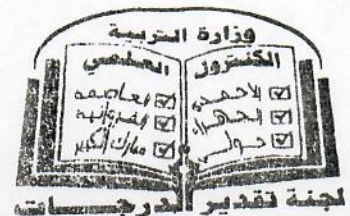 وزارة التربية
الكنترول العلمي
الاحمدي
الجهراء
حولي
العاصمه
الفروانيه
مبارك الكبير
لجنة تقدير الدرجات